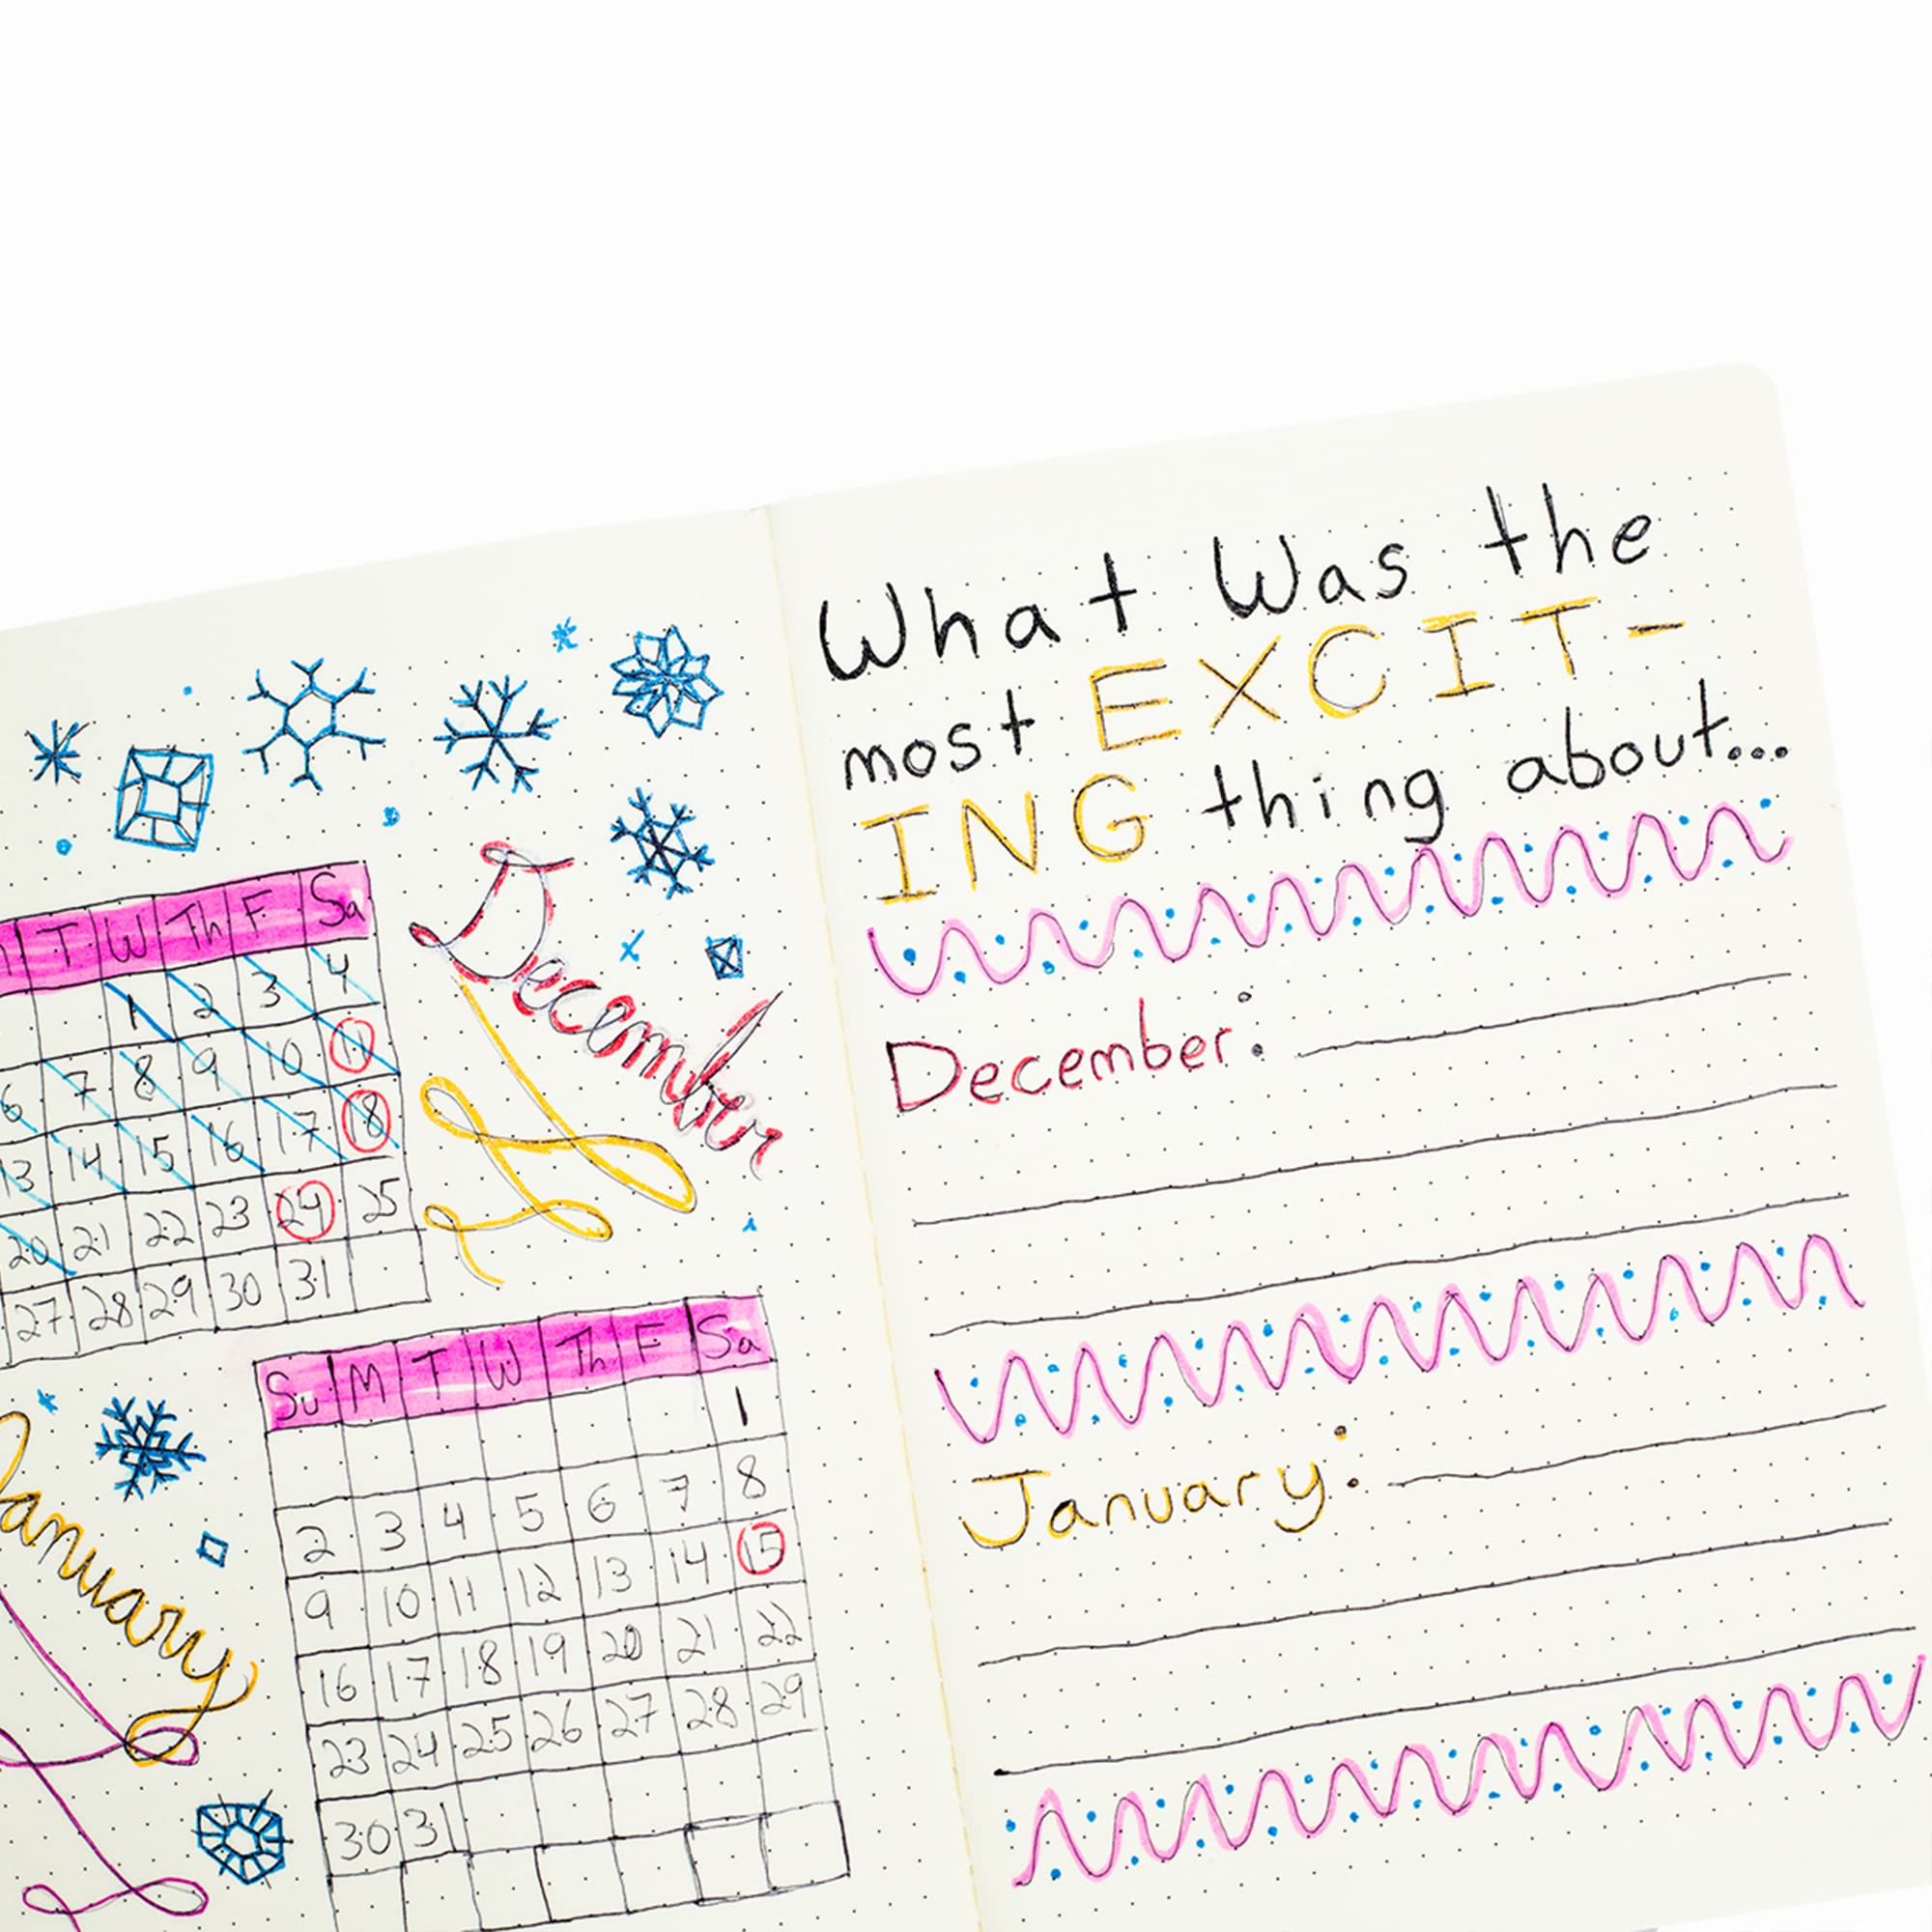 T W Th F Sa
1 2 3 4
6 7 8 9 10 11
13 14 15 16 17 18
20 21 22 23 24 25
27 28 29 30 31
December
January
Su M T W Th F Sa
1
2 3 4 5 6 7 8
9 10 11 12 13 14 15
16 17 18 19 20 21 22
23 24 25 26 27 28 29
30 31
What Was the
most EXCIT-
ING thing about...
December:
January: